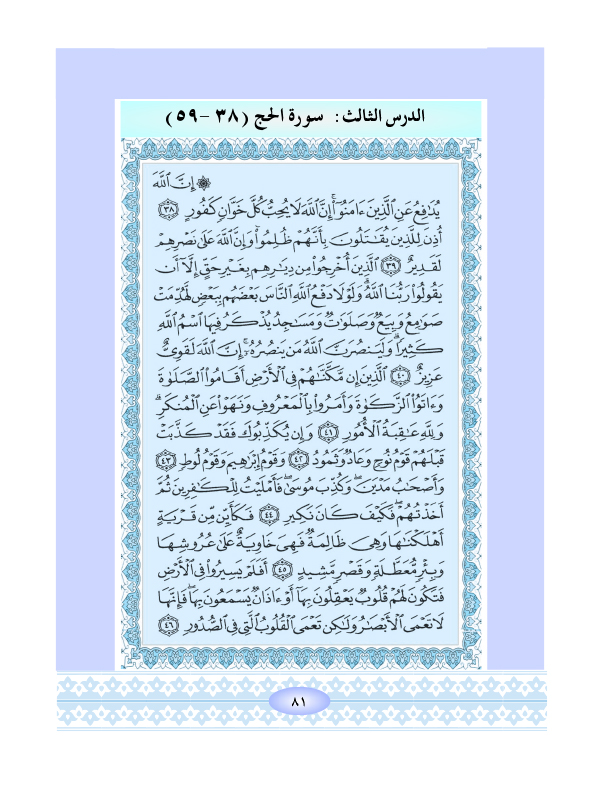 الدرس الثالث: سورة الحج (٣٨ -٥٩)
۞ إِنَّ ٱللَّهَ
يُدَٰفِعُ عَنِ ٱلَّذِينَ ءَامَنُوٓا۟ ۗ إِنَّ ٱللَّهَ لَا يُحِبُّ كُلَّ خَوَّانٍ كَفُورٍ ٣٨
أُذِنَ لِلَّذِينَ يُقَٰتَلُونَ بِأَنَّهُمْ ظُلِمُوا۟ ۚ وَإِنَّ ٱللَّهَ عَلَىٰ نَصْرِهِمْ
لَقَدِيرٌ ٣٩ ٱلَّذِينَ أُخْرِجُوا۟ مِن دِيَٰرِهِم بِغَيْرِ حَقٍّ إِلَّآ أَن
يَقُولُوا۟ رَبُّنَا ٱللَّهُ ۗ وَلَوْلَا دَفْعُ ٱللَّهِ ٱلنَّاسَ بَعْضَهُم بِبَعْضٍ لَّهُدِّمَتْ
صَوَٰمِعُ وَبِيَعٌ وَصَلَوَٰتٌ وَمَسَٰجِدُ يُذْكَرُ فِيهَا ٱسْمُ ٱللَّهِ
كَثِيرًا ۗ وَلَيَنصُرَنَّ ٱللَّهُ مَن يَنصُرُهُۥٓ ۗ إِنَّ ٱللَّهَ لَقَوِىٌّ
عَزِيزٌ ٤٠ ٱلَّذِينَ إِن مَّكَّنَّٰهُمْ فِى ٱلْأَرْضِ أَقَامُوا۟ ٱلصَّلَوٰةَ
وَءَاتَوُا۟ ٱلزَّكَوٰةَ وَأَمَرُوا۟ بِٱلْمَعْرُوفِ وَنَهَوْا۟ عَنِ ٱلْمُنكَرِ ۗ
وَلِلَّهِ عَٰقِبَةُ ٱلْأُمُورِ ٤١ وَإِن يُكَذِّبُوكَ فَقَدْ كَذَّبَتْ
قَبْلَهُمْ قَوْمُ نُوحٍ وَعَادٌ وَثَمُودُ ٤٢ وَقَوْمُ إِبْرَٰهِيمَ وَقَوْمُ لُوطٍ ٤٣
وَأَصْحَٰبُ مَدْيَنَ ۖ وَكُذِّبَ مُوسَىٰ فَأَمْلَيْتُ لِلْكَٰفِرِينَ ثُمَّ
أَخَذْتُهُمْ ۖ فَكَيْفَ كَانَ نَكِيرِ ٤٤ فَكَأَيِّن مِّن قَرْيَةٍ
أَهْلَكْنَٰهَا وَهِىَ ظَالِمَةٌ فَهِىَ خَاوِيَةٌ عَلَىٰ عُرُوشِهَا
وَبِئْرٍ مُّعَطَّلَةٍ وَقَصْرٍ مَّشِيدٍ ٤٥ أَفَلَمْ يَسِيرُوا۟ فِى ٱلْأَرْضِ
فَتَكُونَ لَهُمْ قُلُوبٌ يَعْقِلُونَ بِهَآ أَوْ ءَاذَانٌ يَسْمَعُونَ بِهَا ۖ فَإِنَّهَا
لَا تَعْمَى ٱلْأَبْصَٰرُ وَلَٰكِن تَعْمَى ٱلْقُلُوبُ ٱلَّتِى فِى ٱلصُّدُورِ ٤٦
٨١